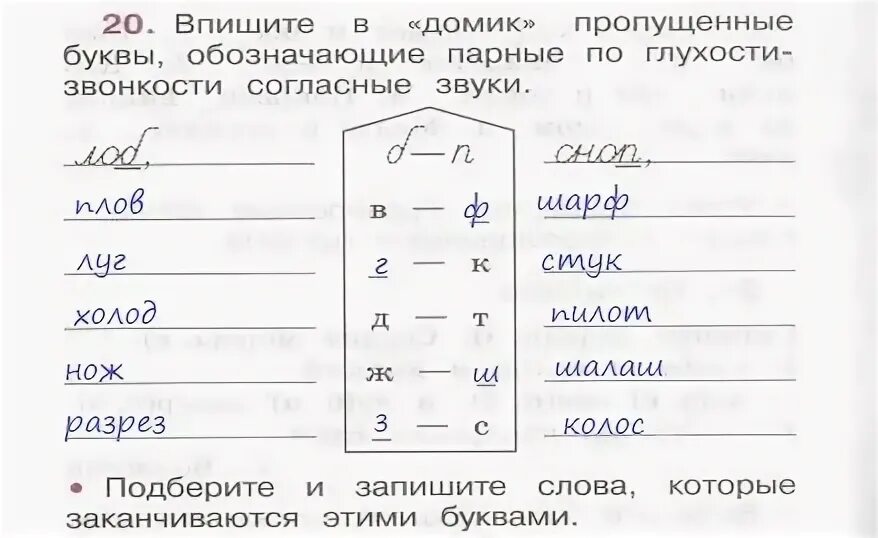 20. Впишите в «домик» пропущенные
буквы, обозначающие парные по глухости-
звонкости согласные звуки.
лоб, б — п сноп,
плов в — ф шарф
луг г — к стук
холод д — т пилот
нож ж — ш шалаш
разрез з — с колос
• Подберите и запишите слова, которые
заканчиваются этими буквами.